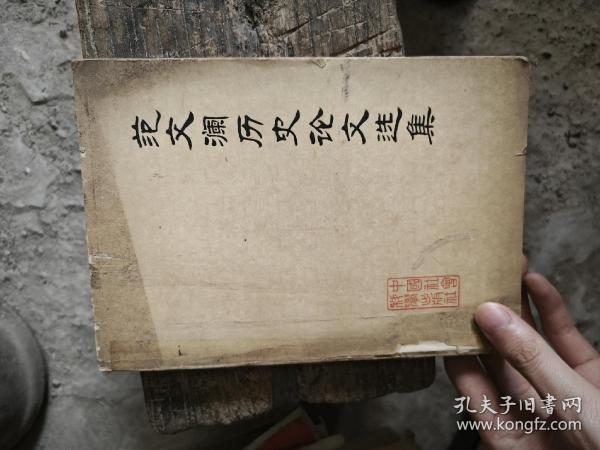 范文澜历史论文选集
中國社會
科學出版社
孔夫子旧書网
www.kongfz.com